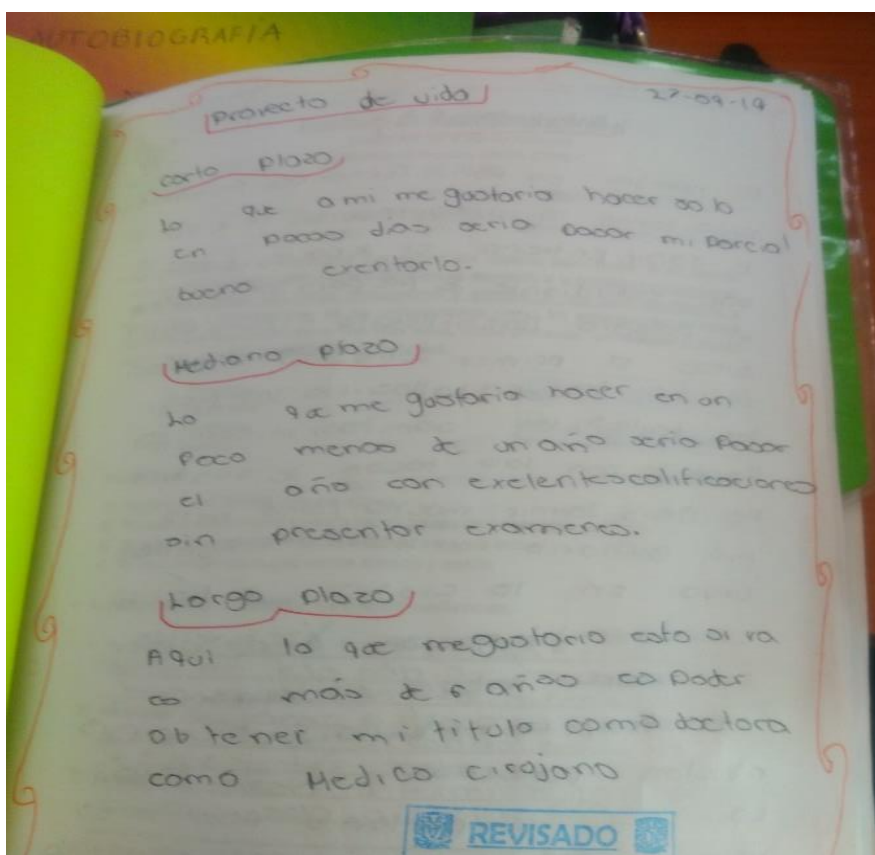 AUTOBIOGRAFIA
Proyecto de vida
27-09-19
corto plazo
Lo que a mi me gustaria hacer so lo
en pocos dias seria pasar mi parcial
bueno exentarlo.
Mediano plazo
Lo que me gustaria hacer en un
poco menos de un año seria pasar
el año con exelentes calificaciones
sin presentar examenes.
Largo plazo
Aqui lo que me gustaria esto si va
es más de 6 años es poder
obtener mi titulo como doctora
como Medico cirujano
REVISADO